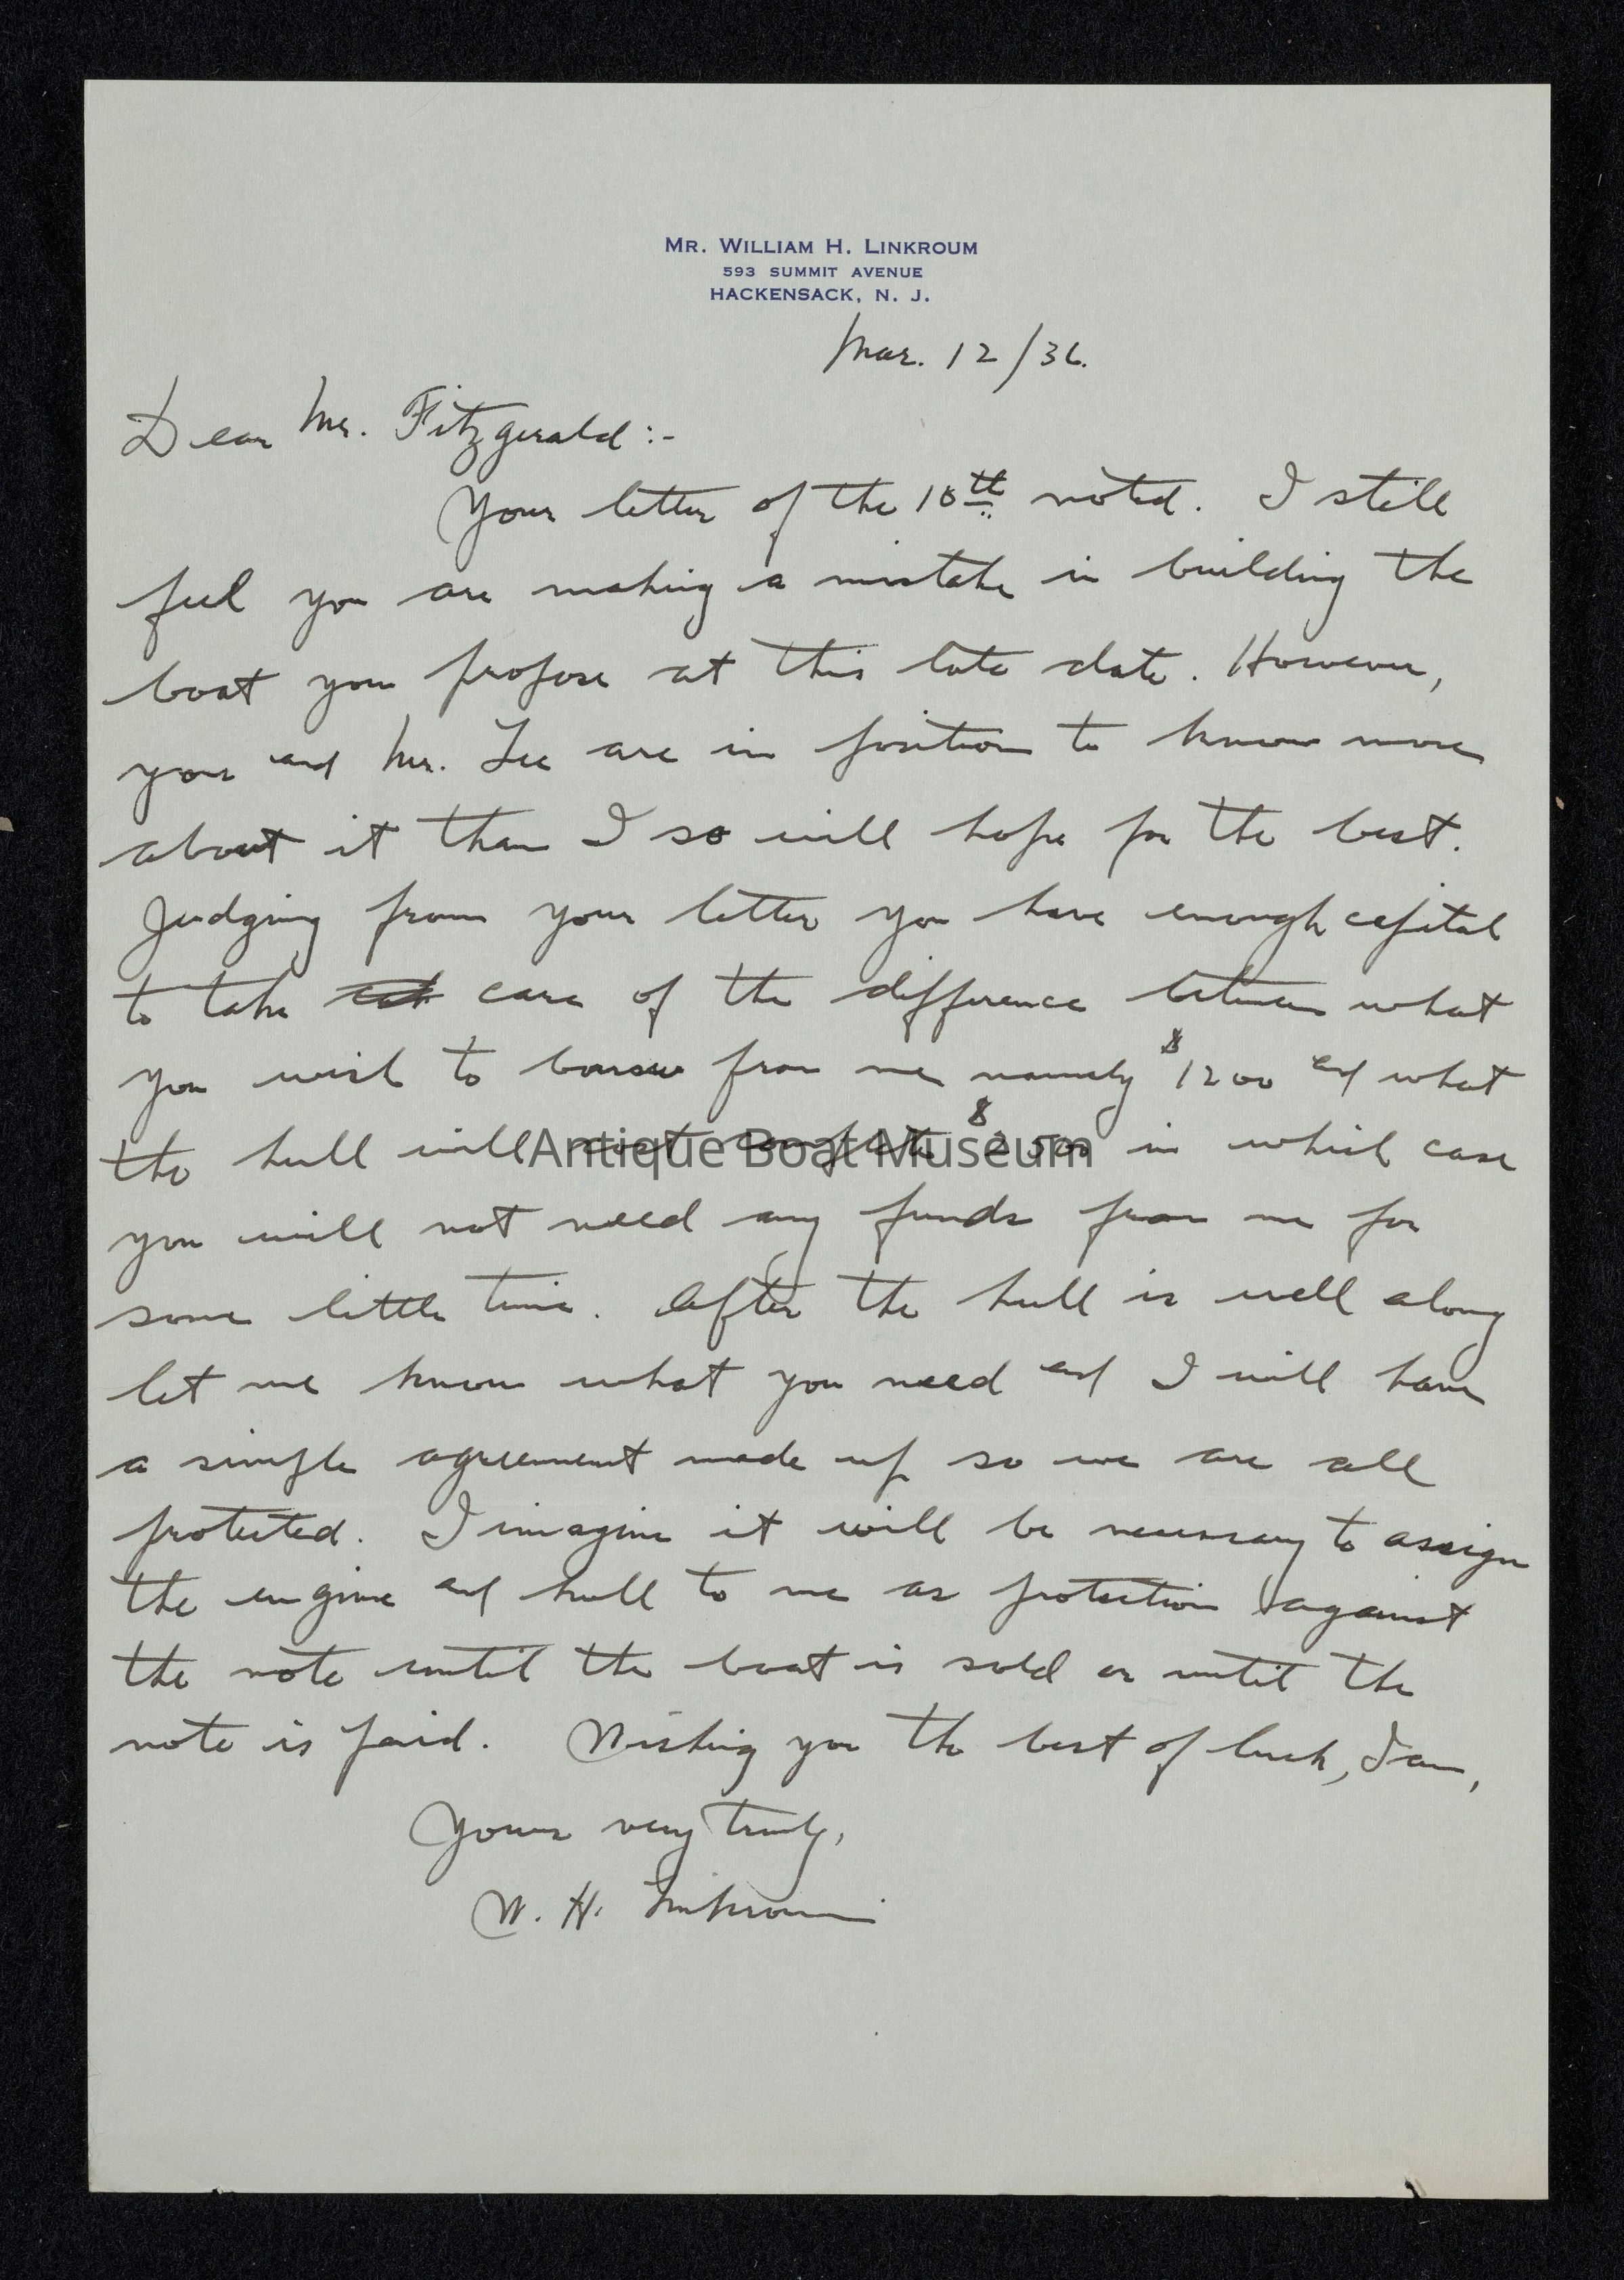 MR. WILLIAM H. LINKROUM
593 SUMMIT AVENUE
HACKENSACK, N. J.
Mar. 12/36.
Dear Mr. Fitzgerald:-
Your letter of the 10th noted. I still
feel you are making a mistake in building the
boat you propose at this late date. However,
you and Mr. Lee are in position to know more
about it than I so will hope for the best.
Judging from your letter you have enough capital
to take care of the difference between what
you wish to borrow from me namely $1200 and what
the hull will cost complete $2500 in which case
Antique Boat Museum
you will not need any funds from me for
some little time. After the hull is well along
let me know what you need and I will have
a simple agreement made up so we are all
protected. I imagine it will be necessary to assign
the engine and hull to me as protection against
the note until the boat is sold or until the
note is paid. Wishing you the best of luck, I am,
Yours very truly,
W. H. Linkroum